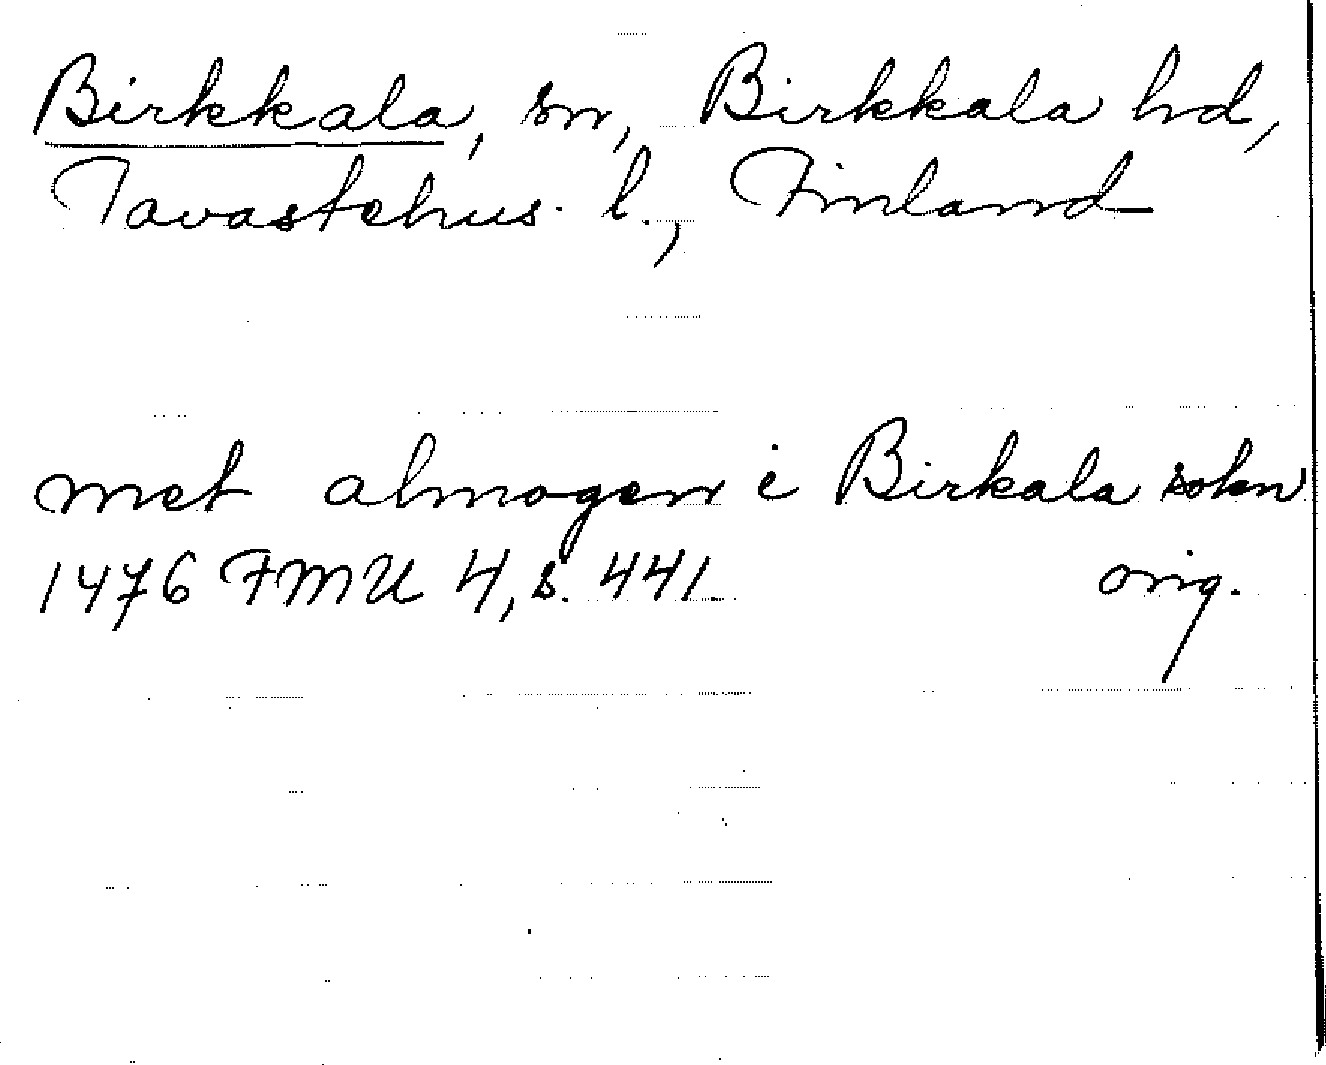 Birkkala, sn, Birkkala hd,
Tavastehus l., Finland
met almogen i Birkala sokn
1476 FMU 4, s. 441. orig.